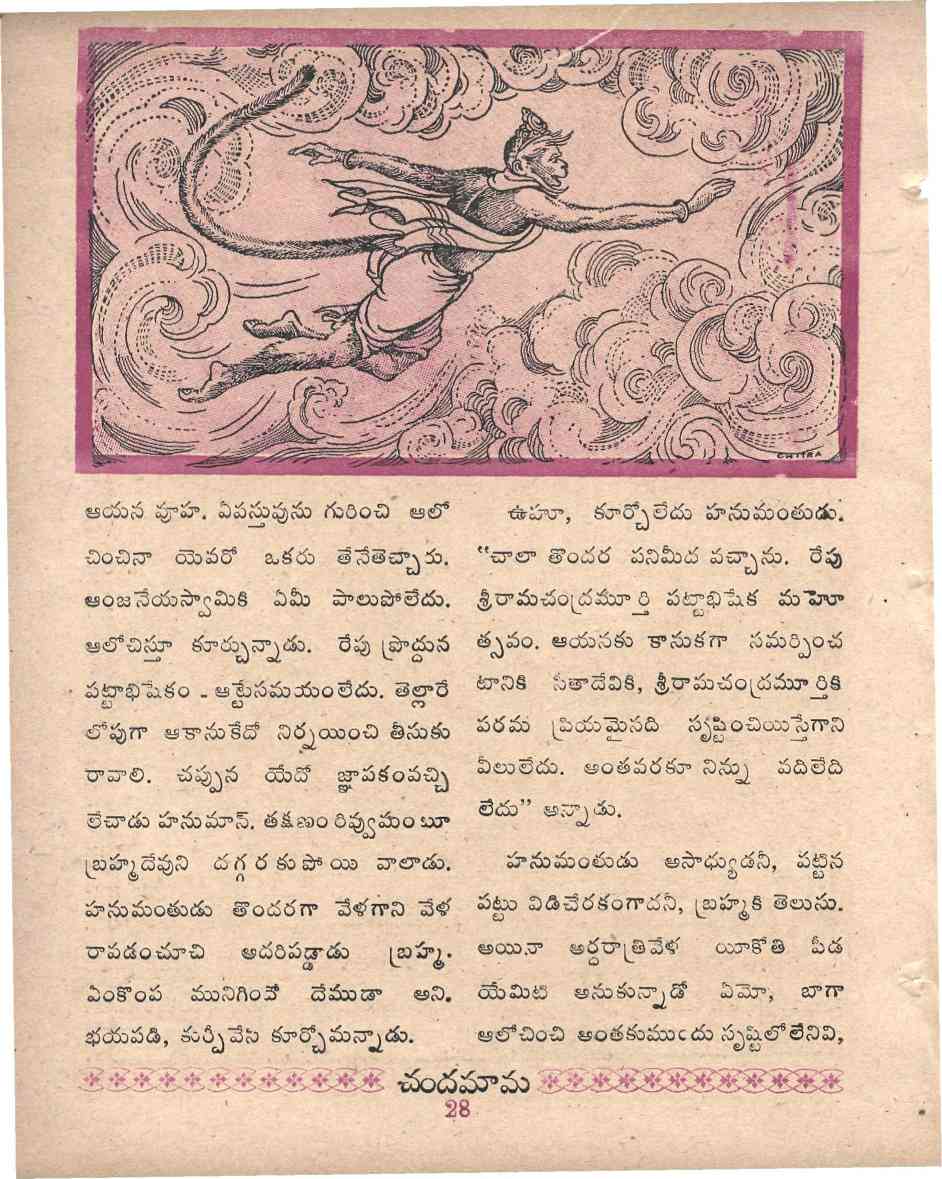 CHITRA
ఆయన వూహ. ఏవస్తువును గురించి ఆలో
చించినా యెవరో ఒకరు తేనేతెచ్చారు.
ఆంజనేయస్వామికి ఏమీ పాలుపోలేదు.
ఆలోచిస్తూ కూర్చున్నాడు. రేపు ప్రొద్దున
పట్టాభిషేకం - ఆట్టేసమయంలేదు. తెల్లారే
లోపుగా ఆకానుకేదో నిర్నయించి తీసుకు
రావాలి. చప్పున యేదో జ్ఞాపకంవచ్చి
లేచాడు హనుమాన్. తక్షణం రివ్వుమంటూ
బ్రహ్మదేవుని దగ్గరకుపోయి వాలాడు.
హనుమంతుడు తొందరగా వేళగాని వేళ
రావడంచూచి అదరిపడ్డాడు బ్రహ్మ.
ఏంకొంప మునిగిందో దేముడా అని.
భయపడి, కుర్చీవేసి కూర్చోమన్నాడు.
ఉహూ, కూర్చోలేదు హనుమంతుడు.
“చాలా తొందర పనిమీద వచ్చాను. రేపు
శ్రీరామచంద్రమూర్తి పట్టాభిషేక మహో
త్సవం. ఆయనకు కానుకగా సమర్పించ
టానికి సీతాదేవికి, శ్రీరామచంద్రమూర్తికి
పరమ ప్రియమైనది సృష్టించియిస్తేగాని
వీలులేదు. అంతవరకూ నిన్ను వదిలేది
లేదు” అన్నాడు.
హనుమంతుడు అసాధ్యుడనీ, పట్టిన
పట్టు విడిచేరకంగాదనీ, బ్రహ్మకి తెలుసు.
అయినా అర్ధరాత్రివేళ యీకోతి పీడ
యేమిటి అనుకున్నాడో ఏమో, బాగా
ఆలోచించి అంతకుముందు సృష్టిలో లేనివి,
చందమామ
28